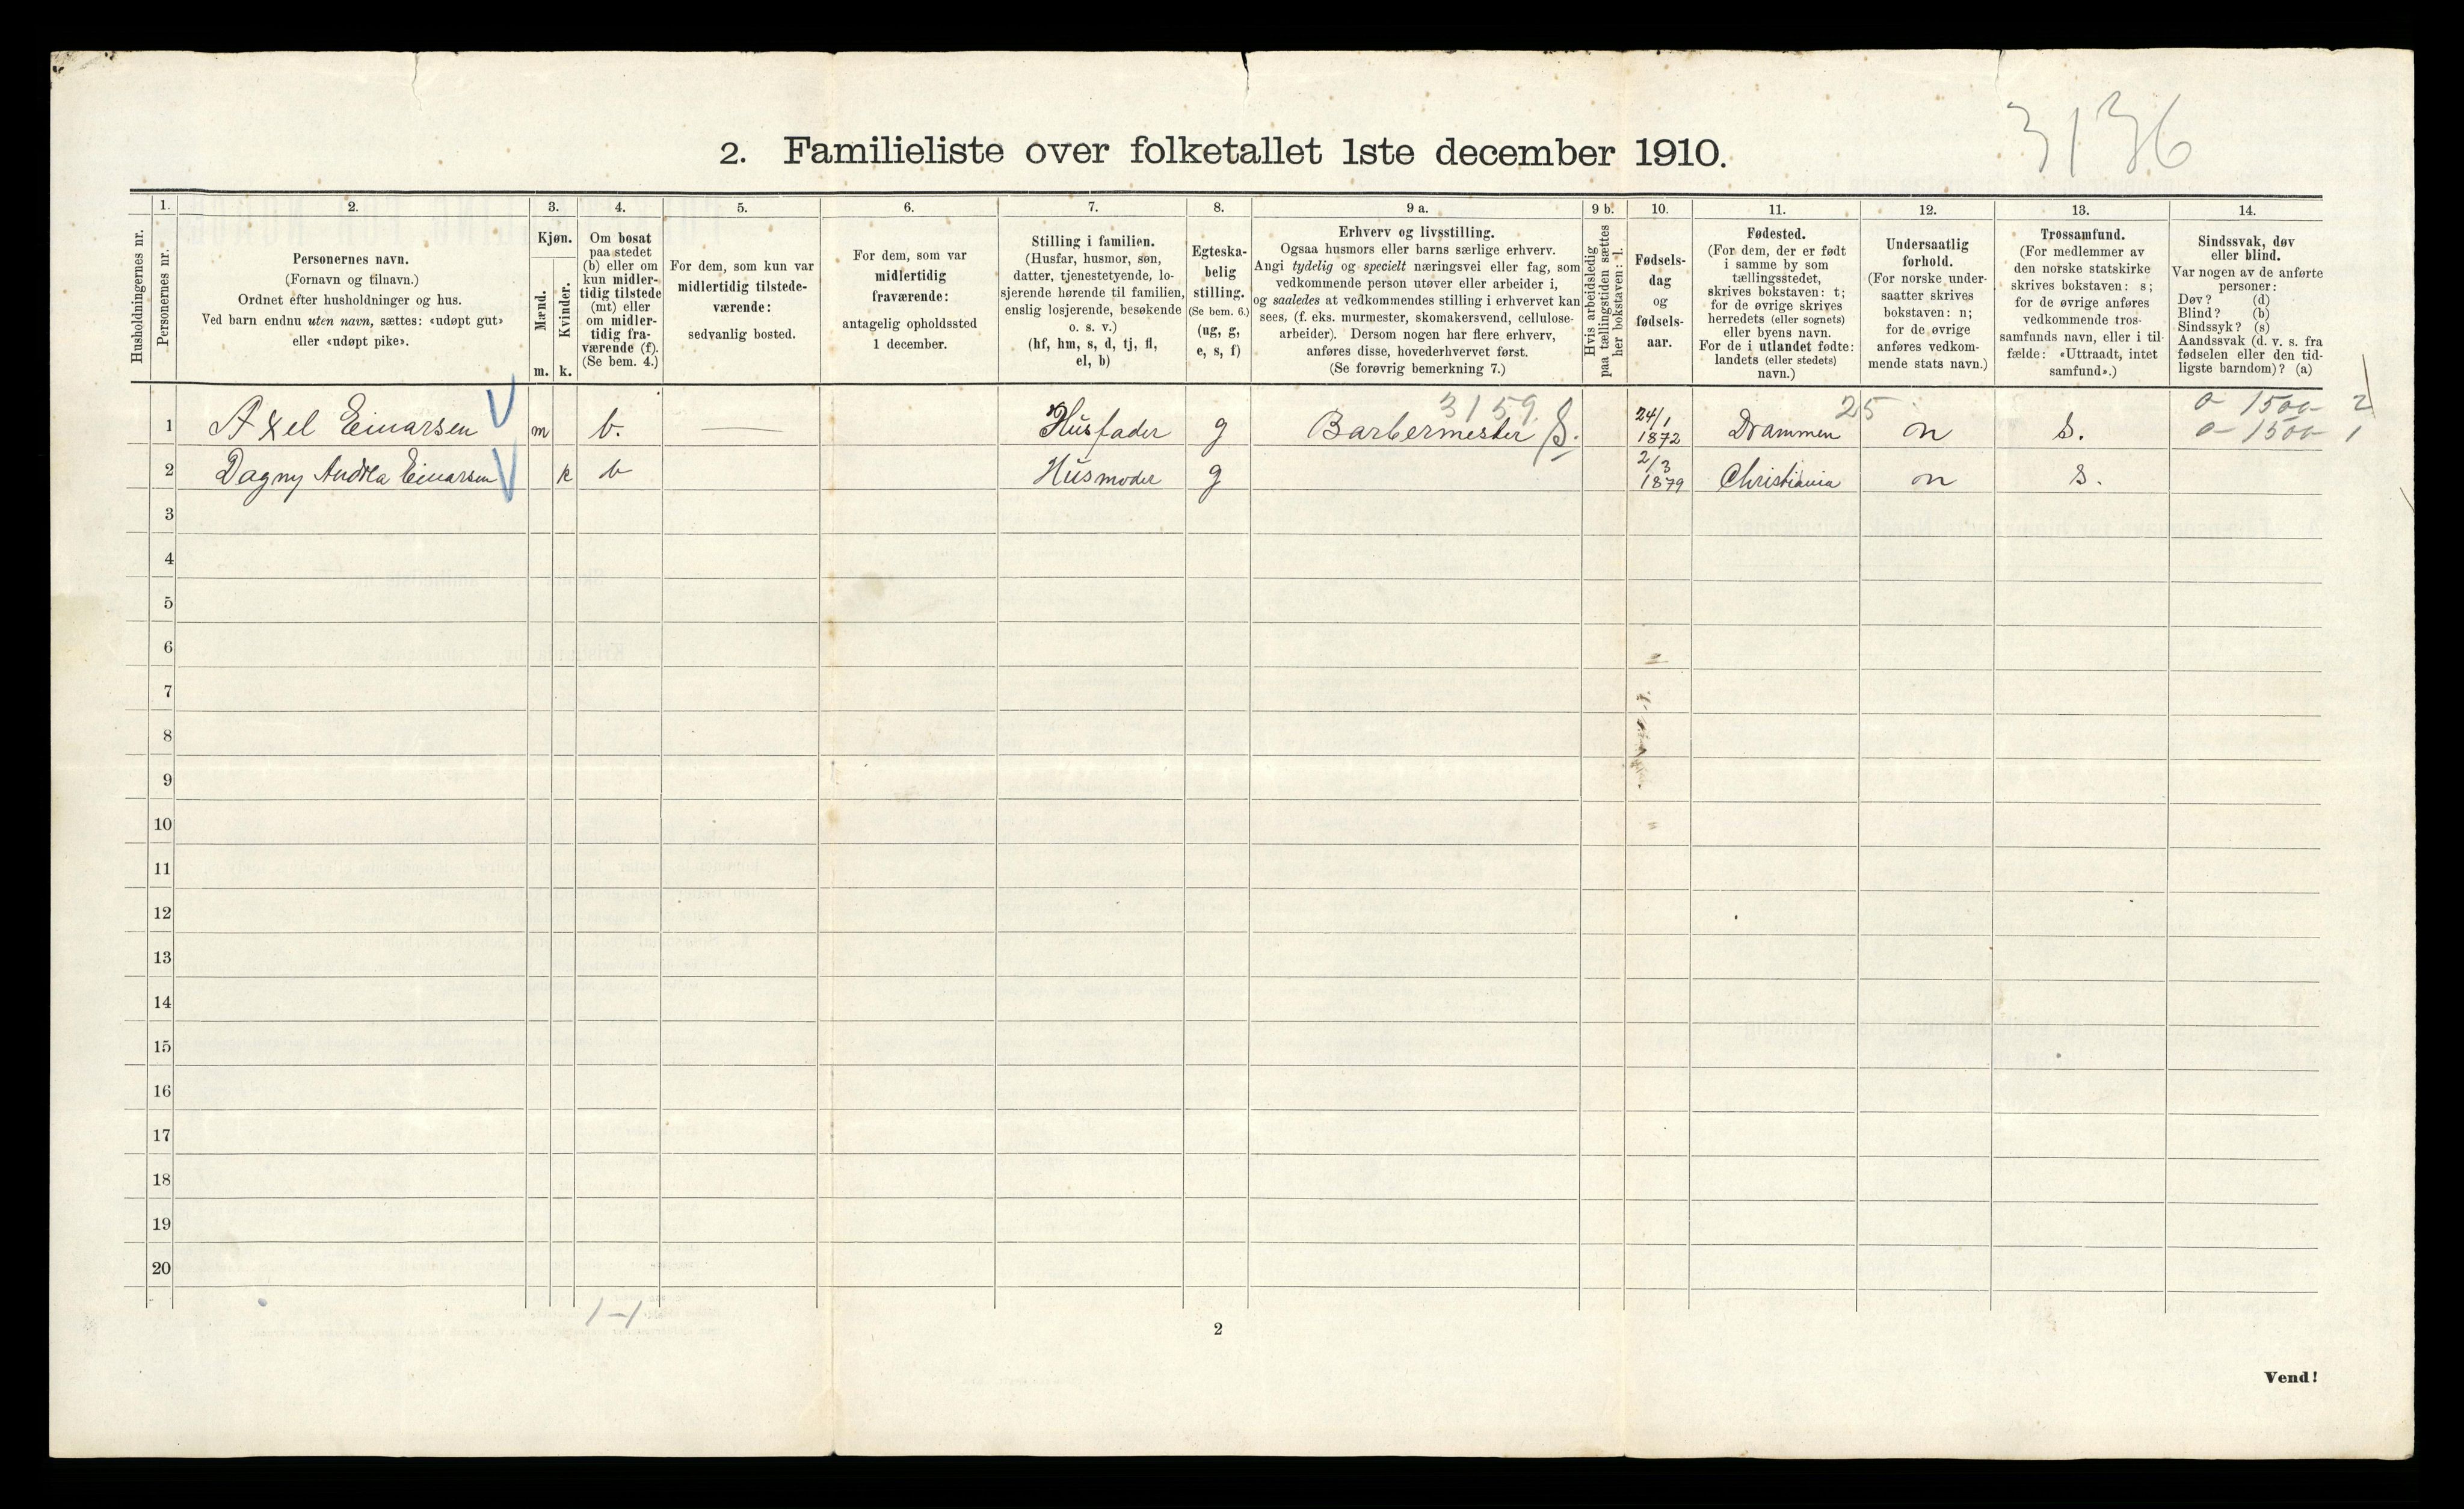 3136
2. Familieliste over folketallet 1ste december 1910.
1. 2. 3. 4. 5. 6. 7. 8. 9 a. 9 b. 10. 11. 12. 13. 14.
Husholdningernes nr.
Personernes nr.
Personernes navn.
(Fornavn og tilnavn.)
Ordnet efter husholdninger og hus.
Ved barn endnu uten navn, sættes: «udøpt gut»
eller «udøpt pike».
Kjøn.
Mænd.
Kvinder.
m. k.
Om bosat
paa stedet
(b) eller om
kun midler-
tidig tilstede
(mt) eller
om midler-
tidig fra-
værende (f).
(Se bem. 4.)
For dem, som kun var
midlertidig tilstede-
værende:
sedvanlig bosted.
For dem, som var
midlertidig
fraværende:
antagelig opholdssted
1 december.
Stilling i familien.
(Husfar, husmor, søn,
datter, tjenestetyende, lo-
sjerende hørende til familien,
enslig losjerende, besøkende
o. s. v.)
(hf, hm, s, d, tj, fl,
el, b)
Egteska-
belig
stilling.
(Se bem. 6.)
(ug, g,
e, s, f)
Erhverv og livsstilling.
Ogsaa husmors eller barns særlige erhverv.
Angi tydelig og specielt næringsvei eller fag, som
vedkommende person utøver eller arbeider i,
og saaledes at vedkommendes stilling i erhvervet kan
sees, (f. eks. murmester, skomakersvend, cellulose-
arbeider). Dersom nogen har flere erhverv,
anføres disse, hovederhvervet først.
(Se forøvrig bemerkning 7.)
Hvis arbeidsledig
paa tællingstiden sættes
her bokstaven: l.
Fødsels-
dag
og
fødsels-
aar.
Fødested.
(For dem, der er født
i samme by som
tællingsstedet,
skrives bokstaven: t;
for de øvrige skrives
herredets (eller sognets)
eller byens navn.
For de i utlandet fødte:
landets (eller stedets)
navn.)
Undersaatlig
forhold.
(For norske under-
saatter skrives
bokstaven: n;
for de øvrige
anføres vedkom-
mende stats navn.)
Trossamfund.
(For medlemmer av
den norske statskirke
skrives bokstaven: s;
for de øvrige anføres
vedkommende tros-
samfunds navn, eller i til-
fælde: «Uttraadt, intet
samfund».)
Sindssvak, døv
eller blind.
Var nogen av de anførte
personer:
Døv? (d)
Blind? (b)
Sindssyk? (s)
Aandssvak (d. v. s. fra
fødselen eller den tid-
ligste barndom)? (a)
3159 25 0-1500-2
1 Axel Einarsen m b. — Husfader g Barbermester S. 24/1 1872 Drammen n s. 0-1500-1
2 Dagny Andrea Einarsen k b Husmoder g 2/3 1879 Christiania n s.
3
4
5
6
7
8
9
10
11
12
13
14
15
16
17
18
19
20
1-1
2
Vend!